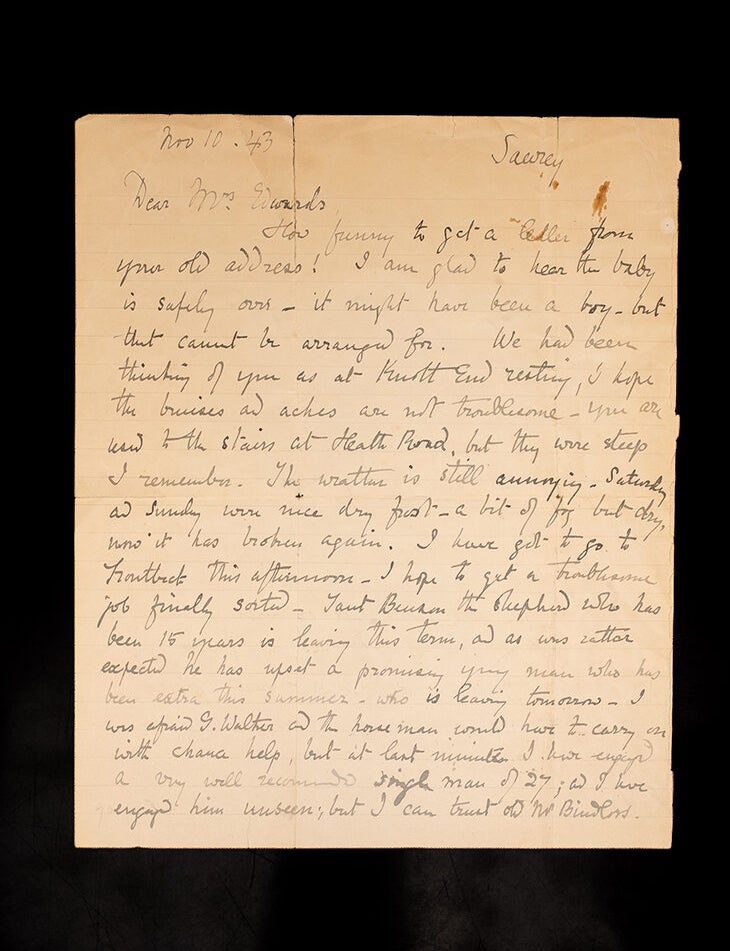 Nov 10. 43
Sawrey
Dear Mrs Edwards
How funny to get a letter from
your old address! I am glad to hear the baby
is safely over – it might have been a boy – but
that cannot be arranged for. We had been
thinking of you as at Knott End resting, I hope
the bruises ad aches are not troublesome – you are
used to the stairs at Heath Road, but they were steep
I remember. The weather is still annoying – Saturday
ad Sunday were nice dry frost – a bit of fog but dry,
now it has broken again. I have got to go to
Troutbeck this afternoon – I hope to get a troublesome
job finally sorted – Tant Benson the shepherd who has
been 15 years is leaving this term, ad as was rather
expected he has upset a promising young man who has
been extra this summer – who is leaving tomorrow – I
was afraid G. Walker ad the horseman would have to carry on
with chance help, but at last minute I have engaged
a very well recommended single man of 27; ad I have
engaged him unseen; but I can trust old Mr Bindloss.